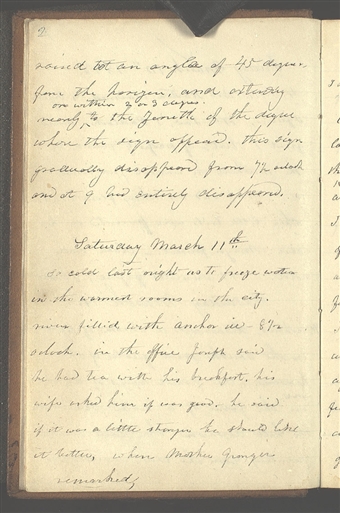 2
raised to an angle of 45 degrees
from the horizon, and extending
on within 2 or 3 degrees.
nearly to the Junction of the degree
where the sign appeared. this sign
gradually disappeared from 7½ oclock
and at 9 had entirely disappeared.
Saturday March 11th
so cold last night as to freeze water
in the warmest rooms in the city.
river filled with anchor ice - 8½
oclock. in the office Joseph said
he had tea with his breakfast. his
wife asked him if was good. he said
if it was a little stronger he should like
it better, when Mother Granger
remarked,